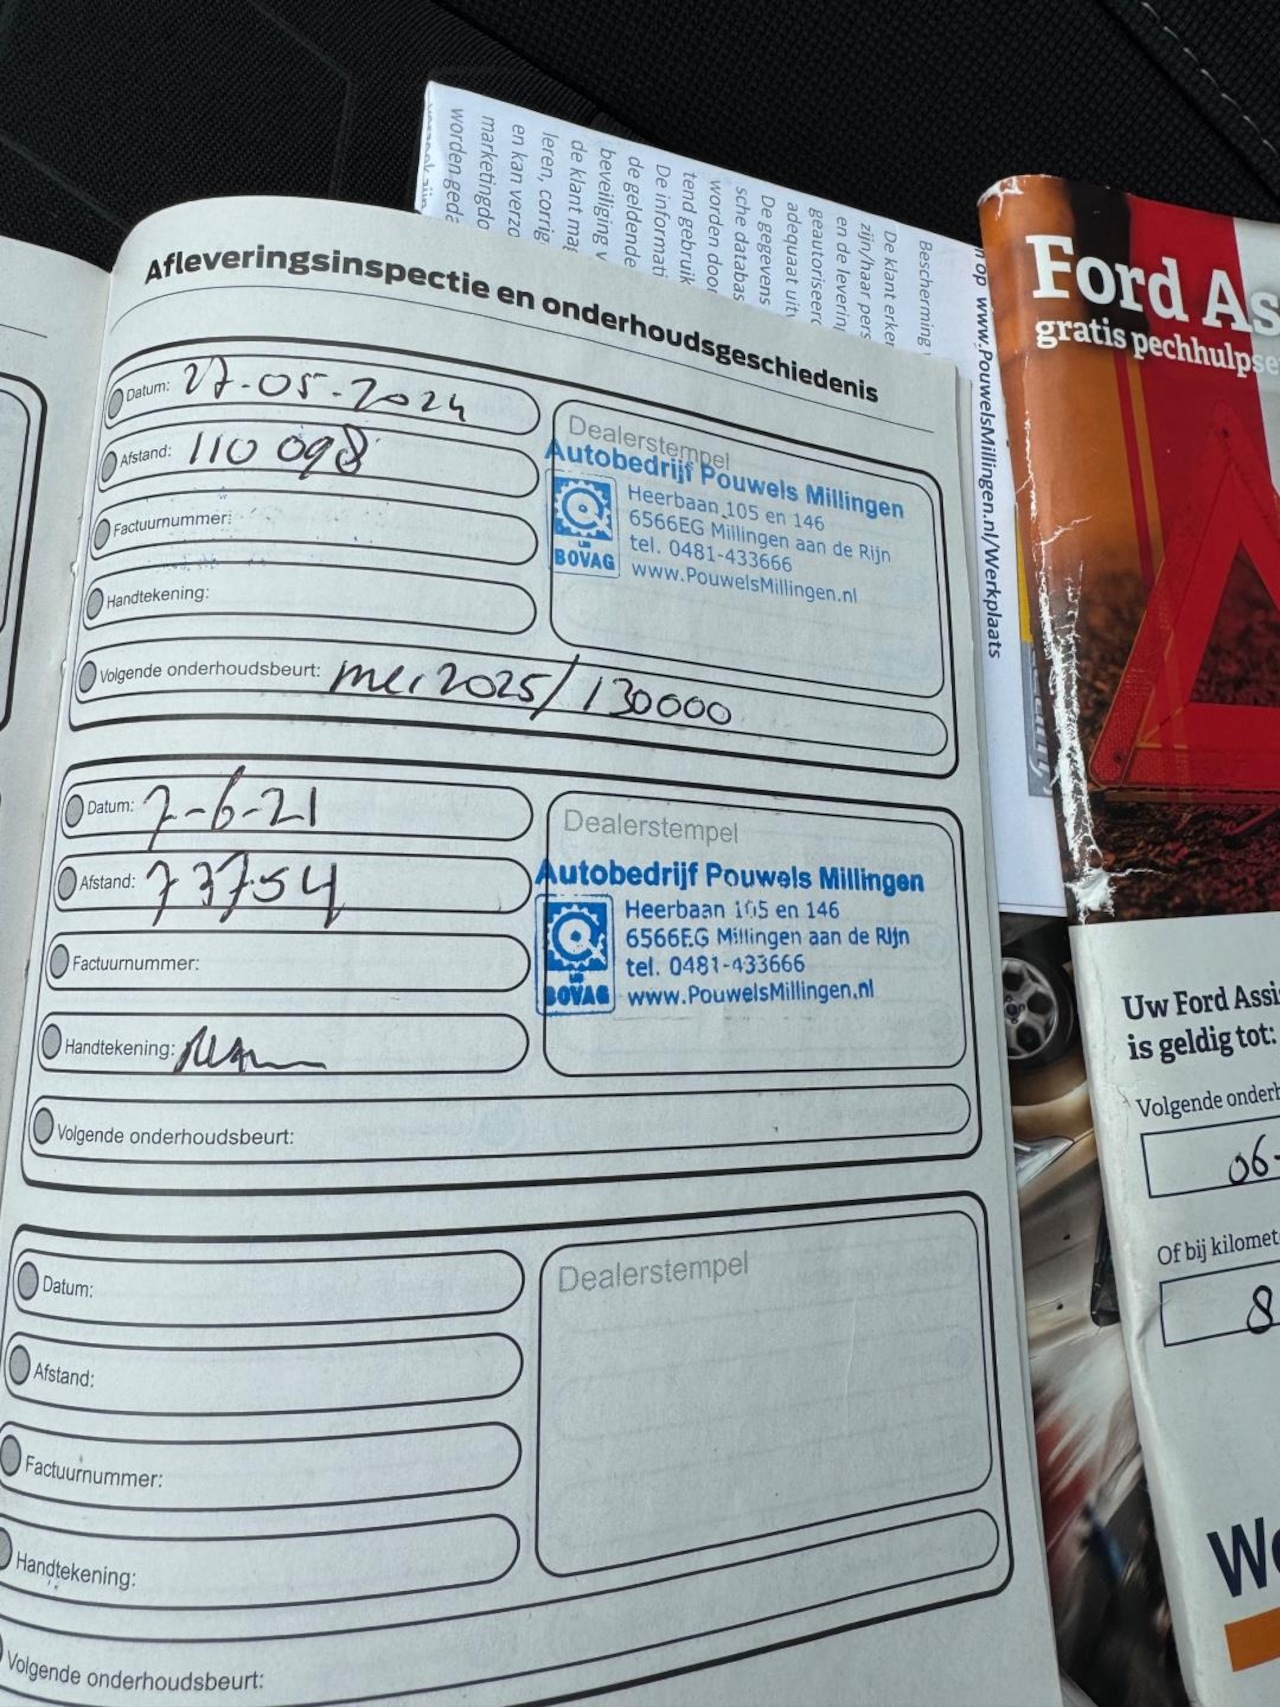 Afleveringsinspectie en onderhoudsgeschiedenis
Datum: 27-05-2024
Afstand: 110 098
Factuurnummer:
Handtekening:
Volgende onderhoudsbeurt: mei 2025/130000
Dealerstempel
Autobedrijf Pouwels Millingen
Heerbaan 105 en 146
6566EG Millingen aan de Rijn
tel. 0481-433666
www.PouwelsMillingen.nl
BOVAG
Datum: 7-6-21
Afstand: 73754
Factuurnummer:
Handtekening:
Volgende onderhoudsbeurt:
Dealerstempel
Autobedrijf Pouwels Millingen
Heerbaan 105 en 146
6566EG Millingen aan de Rijn
tel. 0481-433666
www.PouwelsMillingen.nl
BOVAG
Datum:
Afstand:
Factuurnummer:
Handtekening:
Volgende onderhoudsbeurt:
Dealerstempel
Bescherming
De klant erken
zijn/haar pers
en de levering
geautoriseerd
adequaat uitv
De gegevens
sche databas
worden door
tend gebruik
De informati
de geldende
beveiliging v
de klant mag
leren, corrig
en kan verzo
marketingdo
worden geda
op www.PouwelsMillingen.nl/Werkplaats
Ford As
gratis pechhulpse
Uw Ford Assi
is geldig tot:
Volgende onderh
06-
Of bij kilomet
8
We